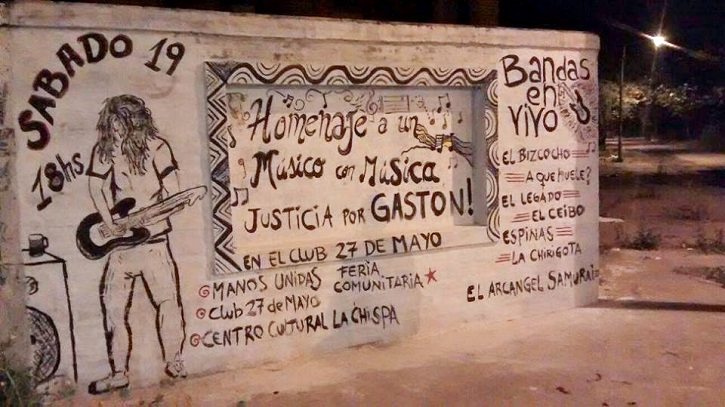 SABADO 19
18hs
Homenaje a un
Músico con Música
JUSTICIA POR GASTON!
EN EL CLUB 27 DE MAYO
MANOS UNIDAS
FERIA
COMUNITARIA
CLUB 27 de MAYO
CENTRO CULTURAL LA CHISPA
Bandas
en
VIVO
EL BIZCOCHO
A QUE HUELE?
EL LEGADO
EL CEIBO
ESPINAS
LA CHIRIGOTA
EL ARCANGEL SAMURAI